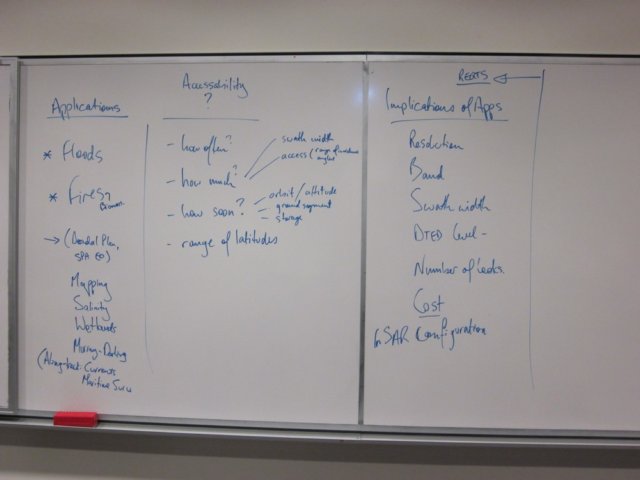 Applications
* Floods
* Fires
→ (Decadal Plan,
SPA EO)
Mapping
Salinity
Wetlands
Murray-Darling
(Along-track: Currents
Maritime Surv
Accessability
?
- how often?
- how much?
swath width
access (range of incidence
angles
- how soon?
orbit/attitude
ground segment
storage
- range of latitudes
REQTS
Implications of Apps
Resolution
Band
Swath width
DTED Level -
Number of looks.
Cost
InSAR Configuration